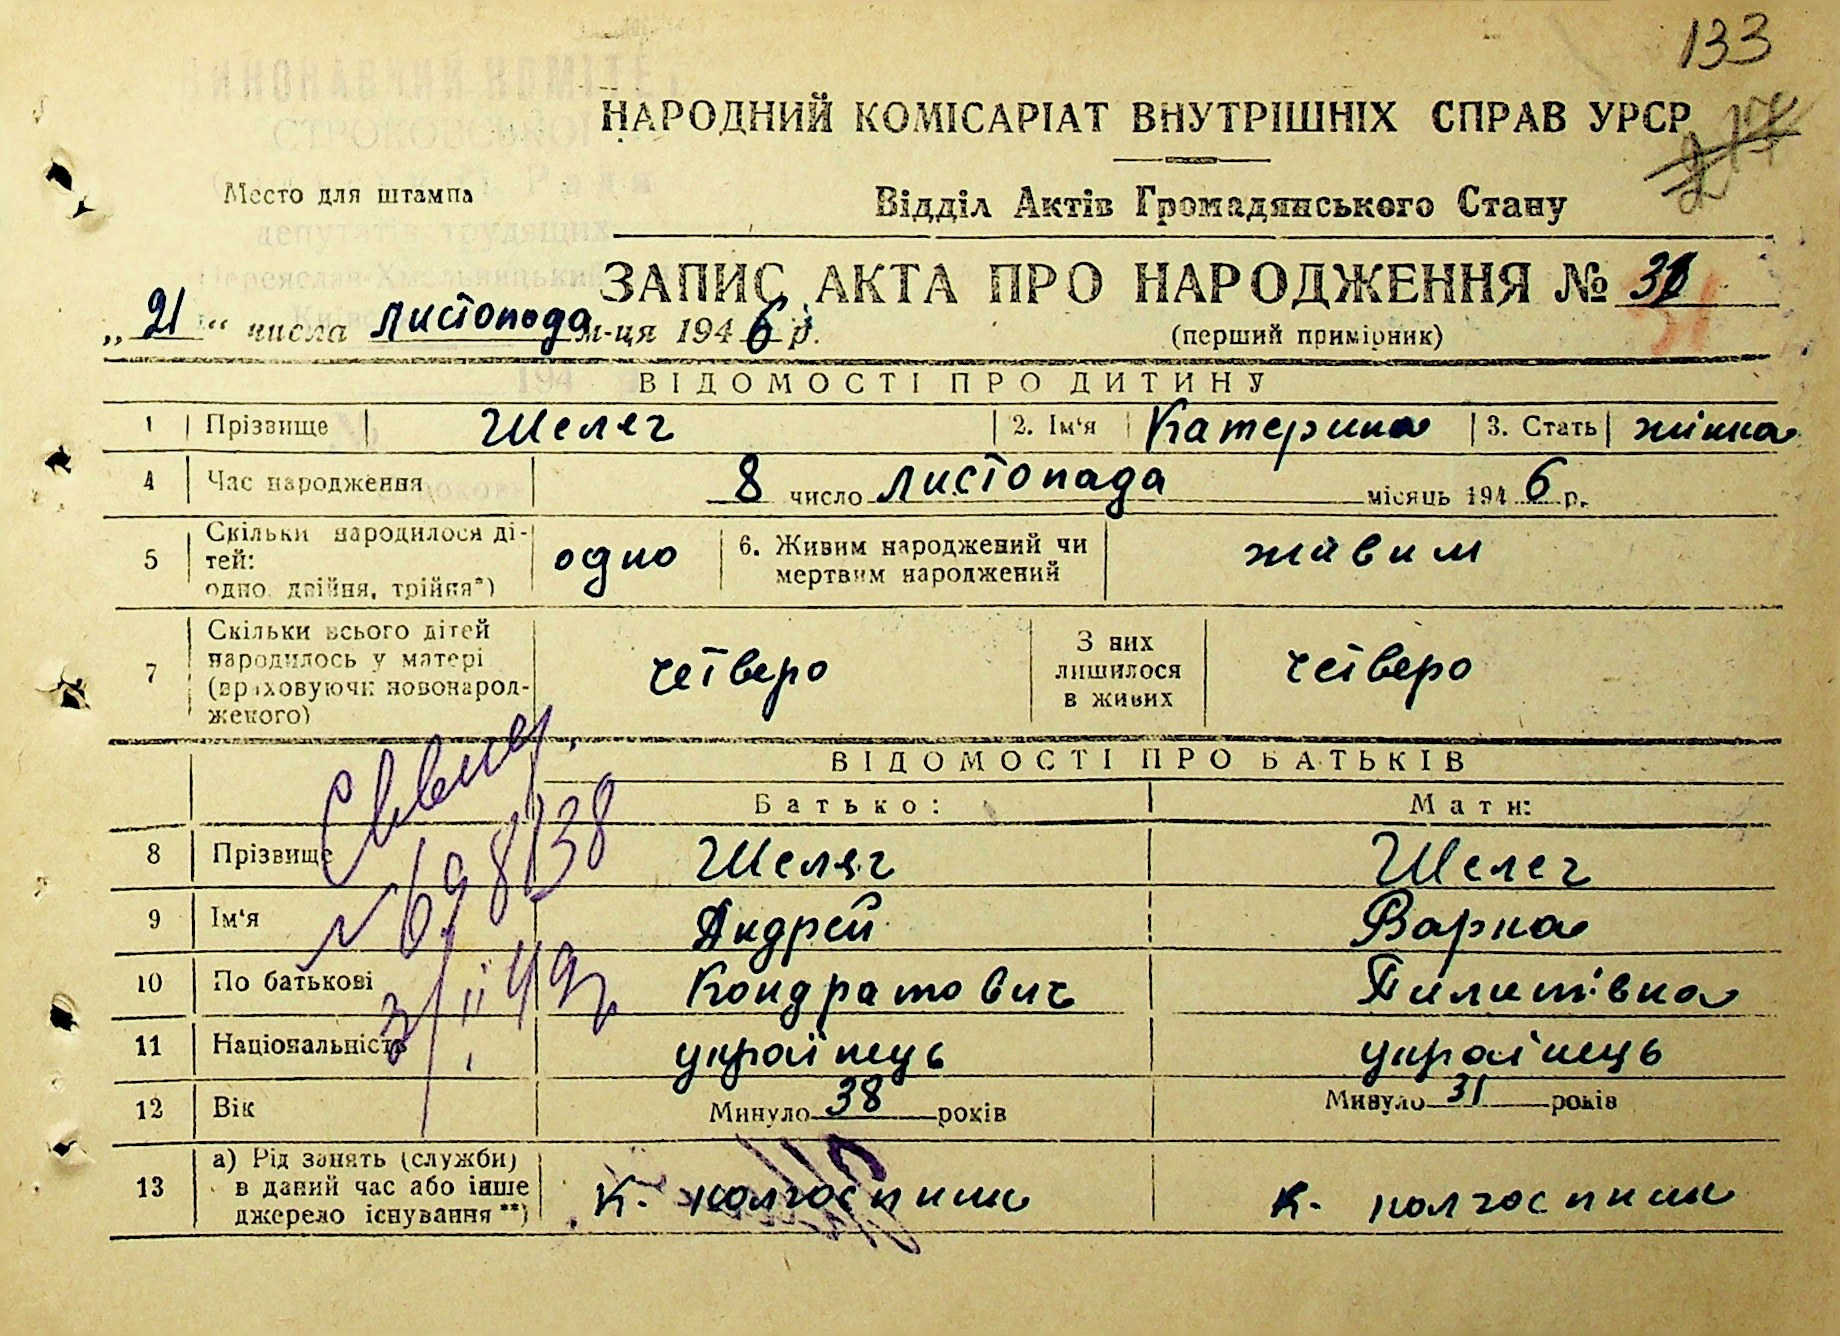 133
НАРОДНИЙ КОМІСАРІАТ ВНУТРІШНІХ СПРАВ УРСР
Место для штампа
Відділ Актів Громадянського Стану
ЗАПИС АКТА ПРО НАРОДЖЕННЯ № 31
31
„21“ числа листопада м-ця 1946 р.
(перший примірник)
ВІДОМОСТІ ПРО ДИТИНУ
1 Прізвище Шелег 2. Ім'я Катерина 3. Стать жінка
4 Час народження 8 число листопада місяць 1946 р.
5 Скільки народилося ді-
тей:
одно, двійня, трійня*) одно 6. Живим народжений чи
мертвим народжений живим
7 Скільки всього дітей
народилось у матері
(враховуючи новонарод-
женого) четверо З них
лишилося
в живих четверо
ВІДОМОСТІ ПРО БАТЬКІВ
Батько: Мати:
8 Прізвище Шелег Шелег
9 Ім'я Андрей Варка
10 По батькові Кондратович Пилипівна
11 Національність українець українець
12 Вік Минуло 38 років Минуло 31 років
13 а) Рід занять (служби)
в даний час або інше
джерело існування**) к. колгоспник к. колгоспник
№ 698138
3/II 49р